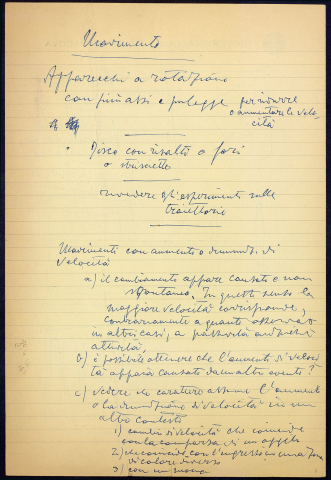 Movimento
Apparecchi a rotazione
con più assi e pulegge per ridurre
o aumentare le velo-
cità
Disco con risalto o fori
o striscette
rivedere gli esperimenti sulle
traiettorie
Movimenti con aumento o diminuz. di
velocità
a) il cambiamento appare causato e non
spontaneo. In questo senso la
maggiore velocità corrisponde,
contrariamente a quanto osservato
in altri casi, a passività anziché
attività.
b) è possibile ottenere che l'aumento di veloci
tà appaia causato da un altro evento?
c) vedere che carattere assume l'aumento
o la diminuzione di velocità in un
altro contesto
1) cambio di velocità che coincide
con la comparsa di un oggetto
2) che coincide con l'ingresso in una zona
di colore diverso
3) con un suono